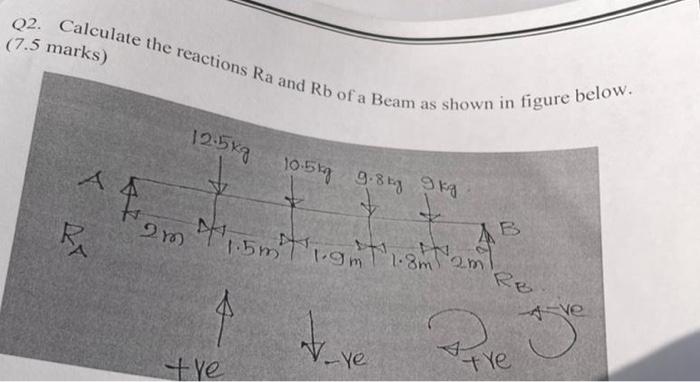 Q2. Calculate the reactions Ra and Rb of a Beam as shown in figure below.
(7.5 marks)
12.5kg 10.5kg 9.8kg 9kg
A B
RA 2m 1.5m 1.9m 1.8m 2m RB
+ve -ve +ve -ve